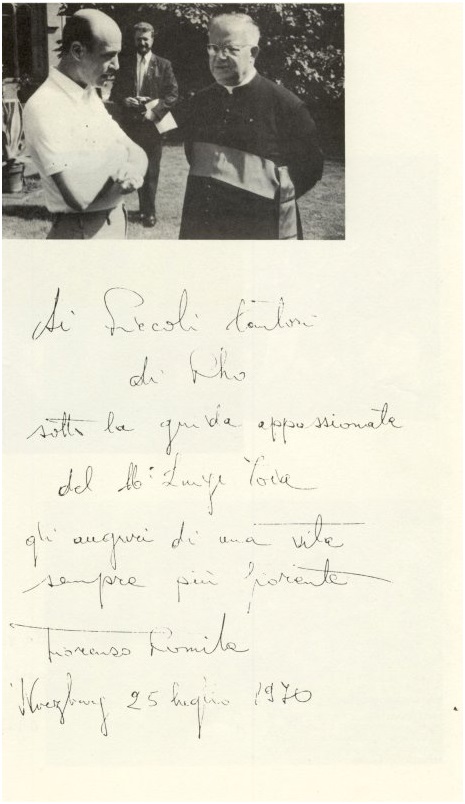 Ai Piccoli Cantori
di Rho
sotto la guida appassionata
del M° Luigi Toia
gli auguri di una vita
sempre più fiorente
Fiorenzo Romita
Würzburg 25 luglio 1970